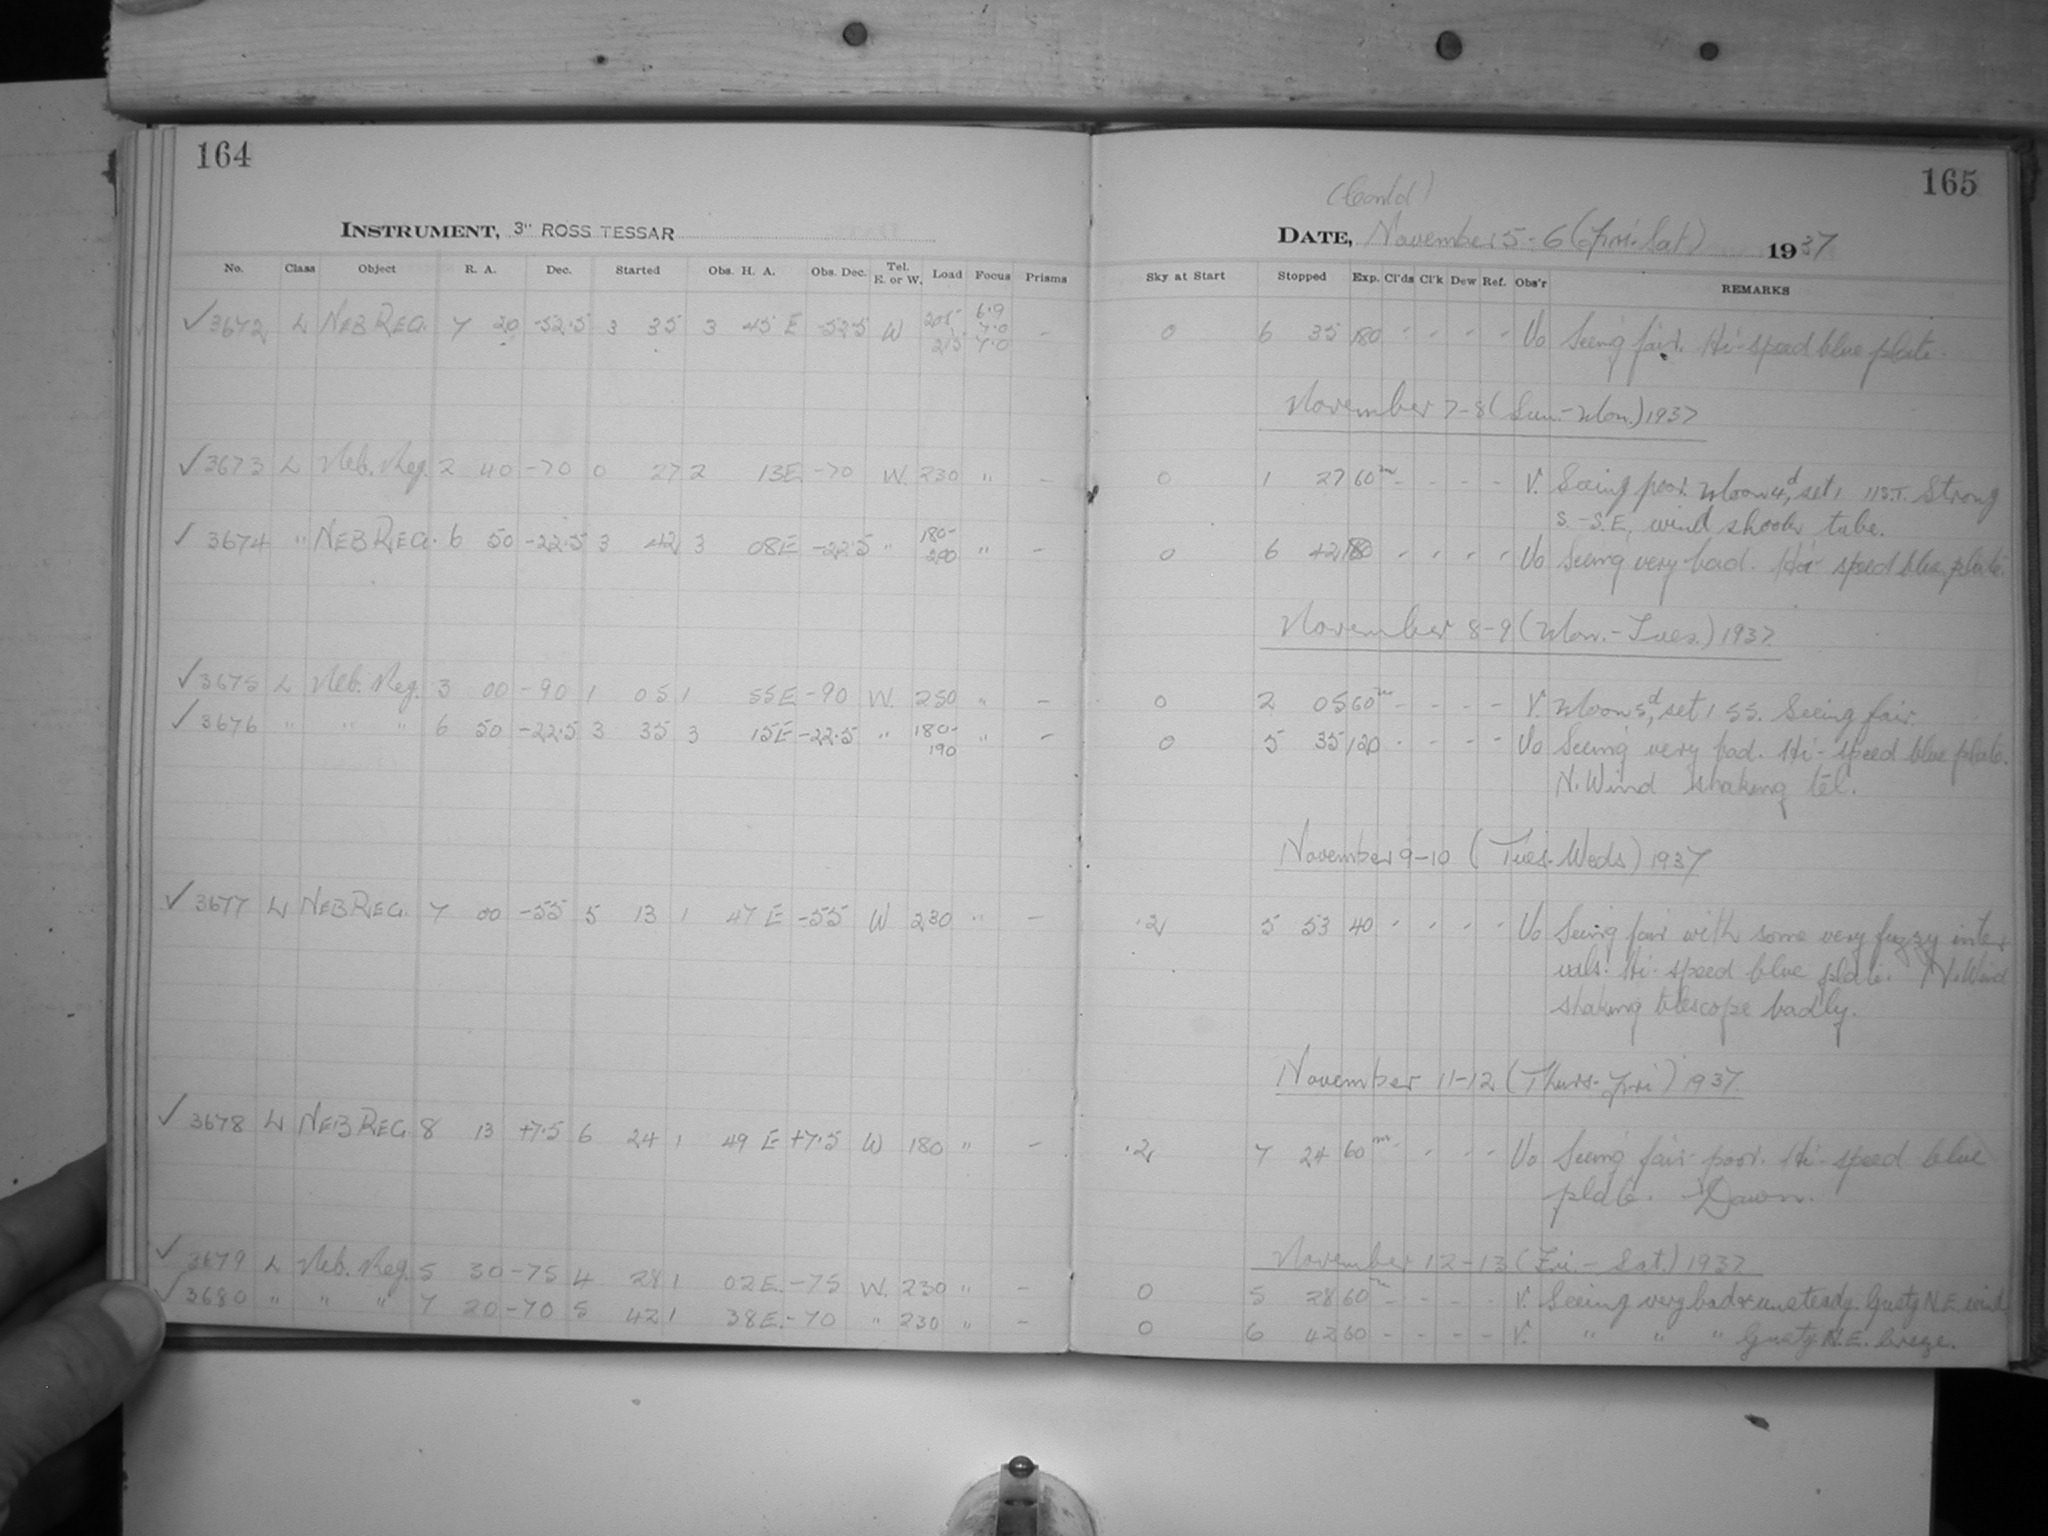 164
INSTRUMENT, 3" ROSS TESSAR
No. Class Object R. A. Dec. Started Obs. H. A. Obs. Dec. Tel. E. or W. Load Focus Prisms
✓ 3672 L NEB REG. 7 20 -52.5 3 35 3 45 E -52.5 W 205- 6.9
7.0
215 7.0 -
✓ 3673 L Neb. Reg. 2 40 -70 0 27 2 13E -70 W. 230 " -
✓ 3674 " NEB REG. 6 50 -22.5 3 42 3 08E -22.5 " 180-
" -
✓ 3675 L Neb. Reg. 3 00 -90 1 05 1 55E -90 W. 250 " -
✓ 3676 " " " 6 50 -22.5 3 35 3 15E -22.5 " 180-
190 " -
✓ 3677 L NEB REG. 7 00 -55 5 13 1 47 E -55 W 230 " -
✓ 3678 L NEB REG. 8 13 +7.5 6 24 1 49 E +7.5 W 180 " -
✓ 3679 L Neb. Reg. 5 30 -75 4 28 1 02E. -75 W. 230 " -
✓ 3680 " " " 7 20 -70 5 42 1 38E. -70 " 230 " -
165
(Contd)
DATE, November 5-6 (Fri-Sat) 1937
Sky at Start Stopped Exp. Cl'ds Cl'k Dew Ref. Obs'r REMARKS
0 6 35 180 - - - - Vo Seeing fair. Hi-speed blue plate.
November 7-8 (Sun.-Mon.) 1937
0 1 27 60m - - - - V. Seeing poor. Moon 4d, set, 11 S.T. Strong
S.-S.E. wind shook tube.
0 6 42 180 - - - - Vo Seeing very bad. Hi-speed blue plate.
November 8-9 (Mon.-Tues.) 1937
0 2 05 60m - - - - V. Moon 5d, set 1 55. Seeing fair.
0 5 35 120 - - - - Vo Seeing very bad. Hi-speed blue plate.
N. Wind shaking tel.
November 9-10 (Tues-Weds) 1937
.2 5 53 40 - - - - Vo Seeing fair with some very fuzzy inter
vals. Hi-speed blue plate. N. Wind
shaking telescope badly.
November 11-12 (Thurs-Fri) 1937
.2 7 24 60m - - - - Vo Seeing fair-poor. Hi-speed blue
plate. Dawn.
November 12-13 (Fri.-Sat.) 1937
0 5 28 60m - - - - V. Seeing very bad & unsteady. Gusty N.E. wind
0 6 42 60 - - - - V. " " " Gusty N.E. breeze.